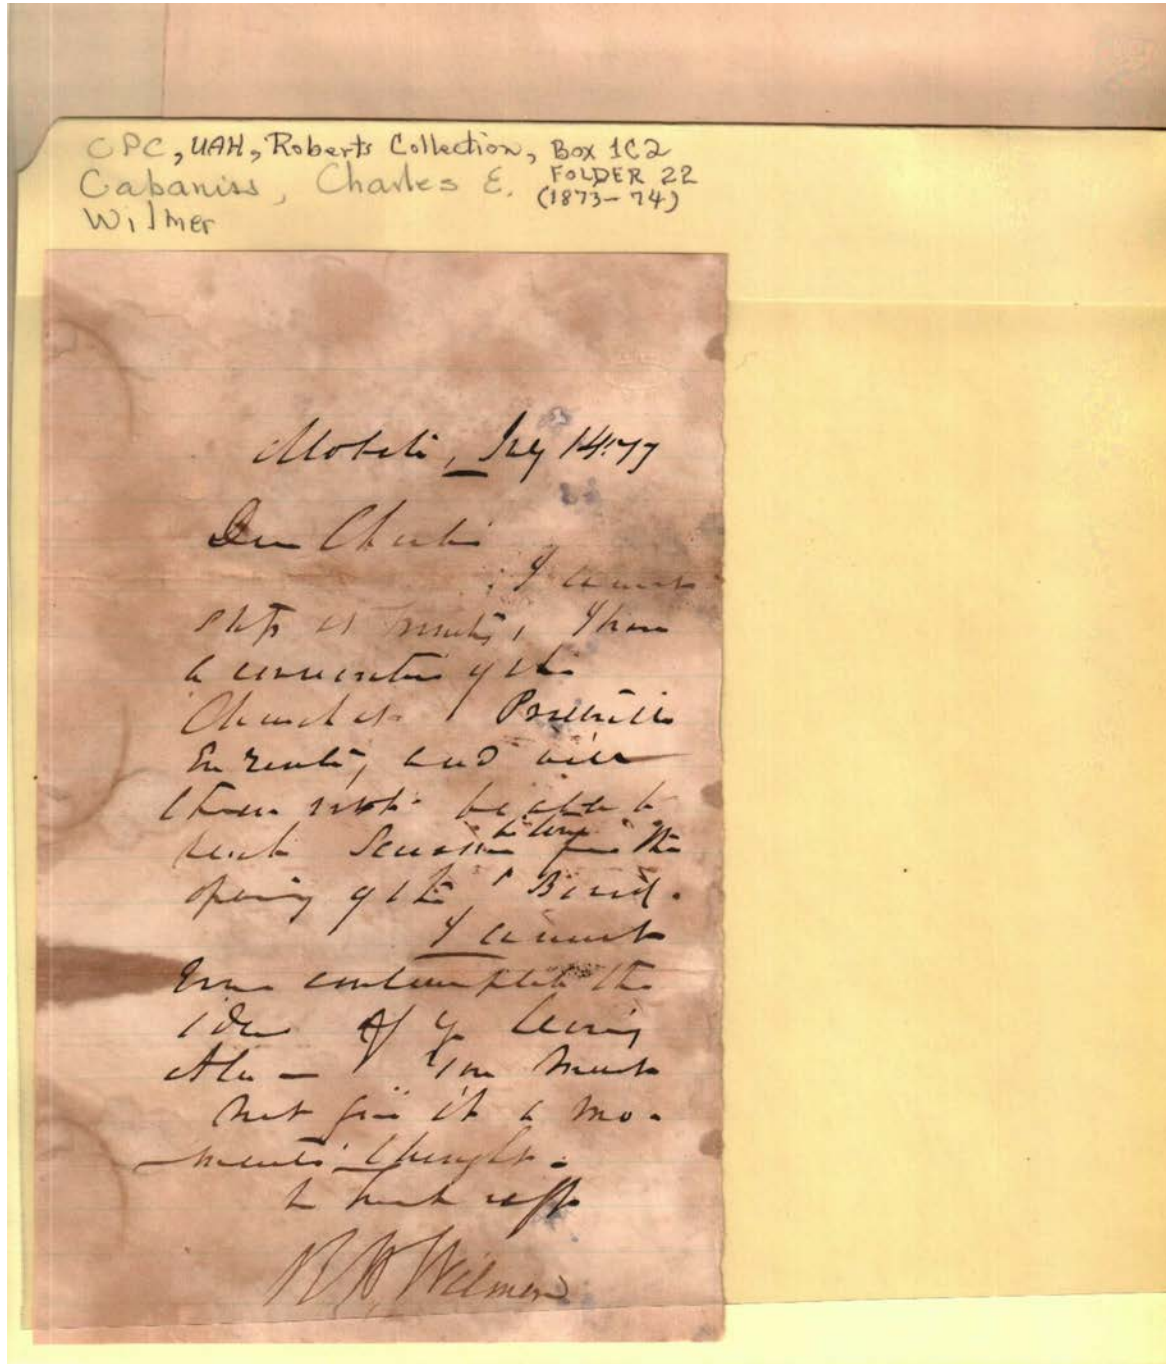 CPC, UAH, Roberts Collection, Box 1C2
FOLDER 22
Cabaniss, Charles E. (1873-74)
Wilmer
Mobile, July 14th
Dear Charlie
I cannot
stop at
a consecration of the
Church at
En route, and will
then not be able to
reach Sewanee in time for the
opening of the Board.
I cannot
Even contemplate the
idea of yr leaving
Ala — You must
not give it a mo-
ments' thought.
In much aff
R H Wilmer